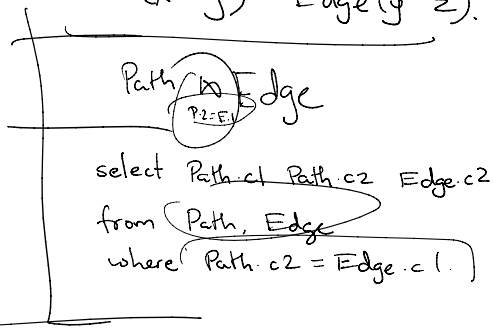 Edge(y z).
Path ⋈ Edge
P.2=E.1
select Path.c1 Path.c2 Edge.c2
from Path, Edge
where Path.c2 = Edge.c1.